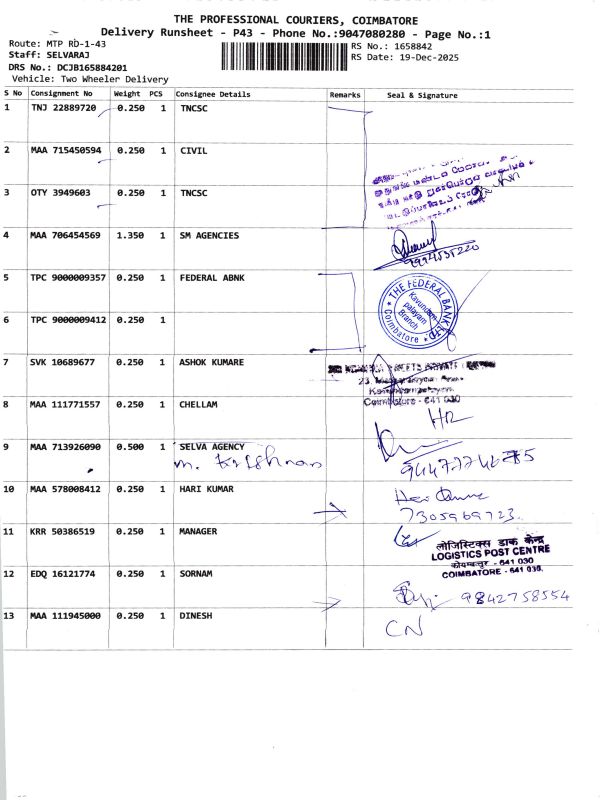 THE PROFESSIONAL COURIERS, COIMBATORE
Delivery Runsheet - P43 - Phone No.:9047080280 - Page No.:1
Route: MTP RD-1-43
RS No.: 1658842
Staff: SELVARAJ
RS Date: 19-Dec-2025
DRS No.: DCJB165884201
Vehicle: Two Wheeler Delivery
S No Consignment No Weight PCS Consignee Details Remarks Seal & Signature
1 TNJ 22889720 0.250 1 TNCSC
2 MAA 715450594 0.250 1 CIVIL
3 OTY 3949603 0.250 1 TNCSC
4 MAA 706454569 1.350 1 SM AGENCIES
9994535220
5 TPC 9000009357 0.250 1 FEDERAL ABNK
THE FEDERAL BANK LTD.
Kavundampalayam
Branch
Coimbatore
6 TPC 9000009412 0.250 1
7 SVK 10689677 0.250 1 ASHOK KUMARE
Coimbatore - 641 030
8 MAA 111771557 0.250 1 CHELLAM
HR
9 MAA 713926090 0.500 1 SELVA AGENCY
M. Krishnan
10 MAA 578008412 0.250 1 HARI KUMAR
7305969723
11 KRR 50386519 0.250 1 MANAGER
लोजिस्टिक्स डाक केन्द्र
LOGISTICS POST CENTRE
कोयम्बत्तूर - 641 030
COIMBATORE - 641 030.
12 EDQ 16121774 0.250 1 SORNAM
9842758554
13 MAA 111945000 0.250 1 DINESH
CN